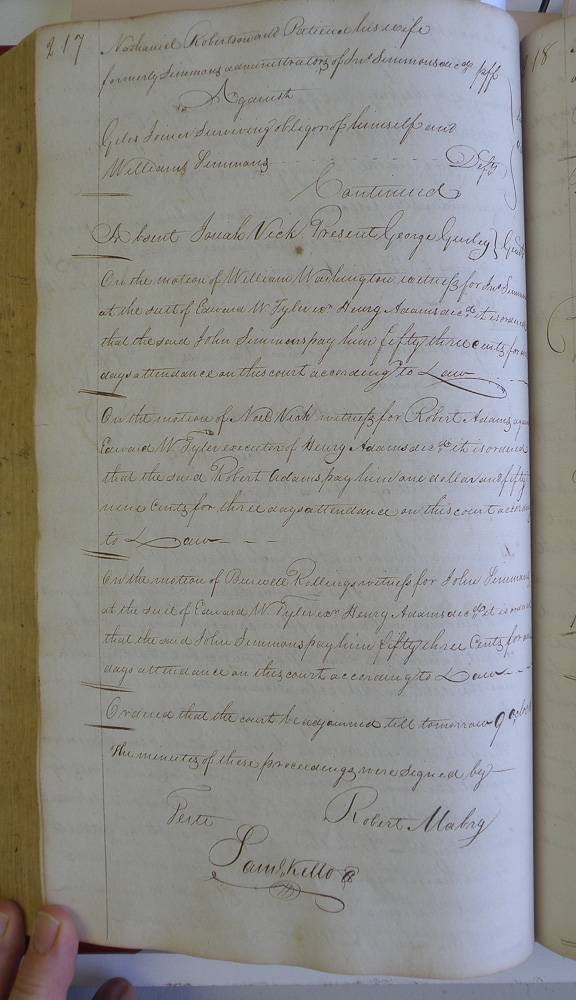 217
Nathaniel Robertson and Patience his wife
formerly Simmons administratrix of Jno. Simmons decd. plff
Against
Giles Joiner Surviving obligor of himself and
Williams Simmons Defts
Continued
Absent Josiah Vick. Present George Gurley } Gent
On the motion of William Washington witness for Jno Simmons
at the suit of Edward W Tyler exr. Henry Adams decd. it is ordered
that the said John Simmons pay him fifty three cents for one
days attendance on this court according to Law
On the motion of Noel Vick witness for Robert Adams against
Edward W Tyler executor of Henry Adams decd. it is ordered
that the said Robert Adams pay him one dollar and fifty
nine Cents for three days attendance on this court accord
to Law
On the motion of Burwell Rollings witness for John Simmons
at the suit of Edward W Tyler exr Henry Adams decd. it is ordered
that the said John Simmons pay him fifty three Cents for one
days attendance on this court according to Law
Ordered that the court be adjourned till tomorrow 9 oclock
The minutes of these proceedings were signed by
Teste Robert Mabry
Saml. Kello
18